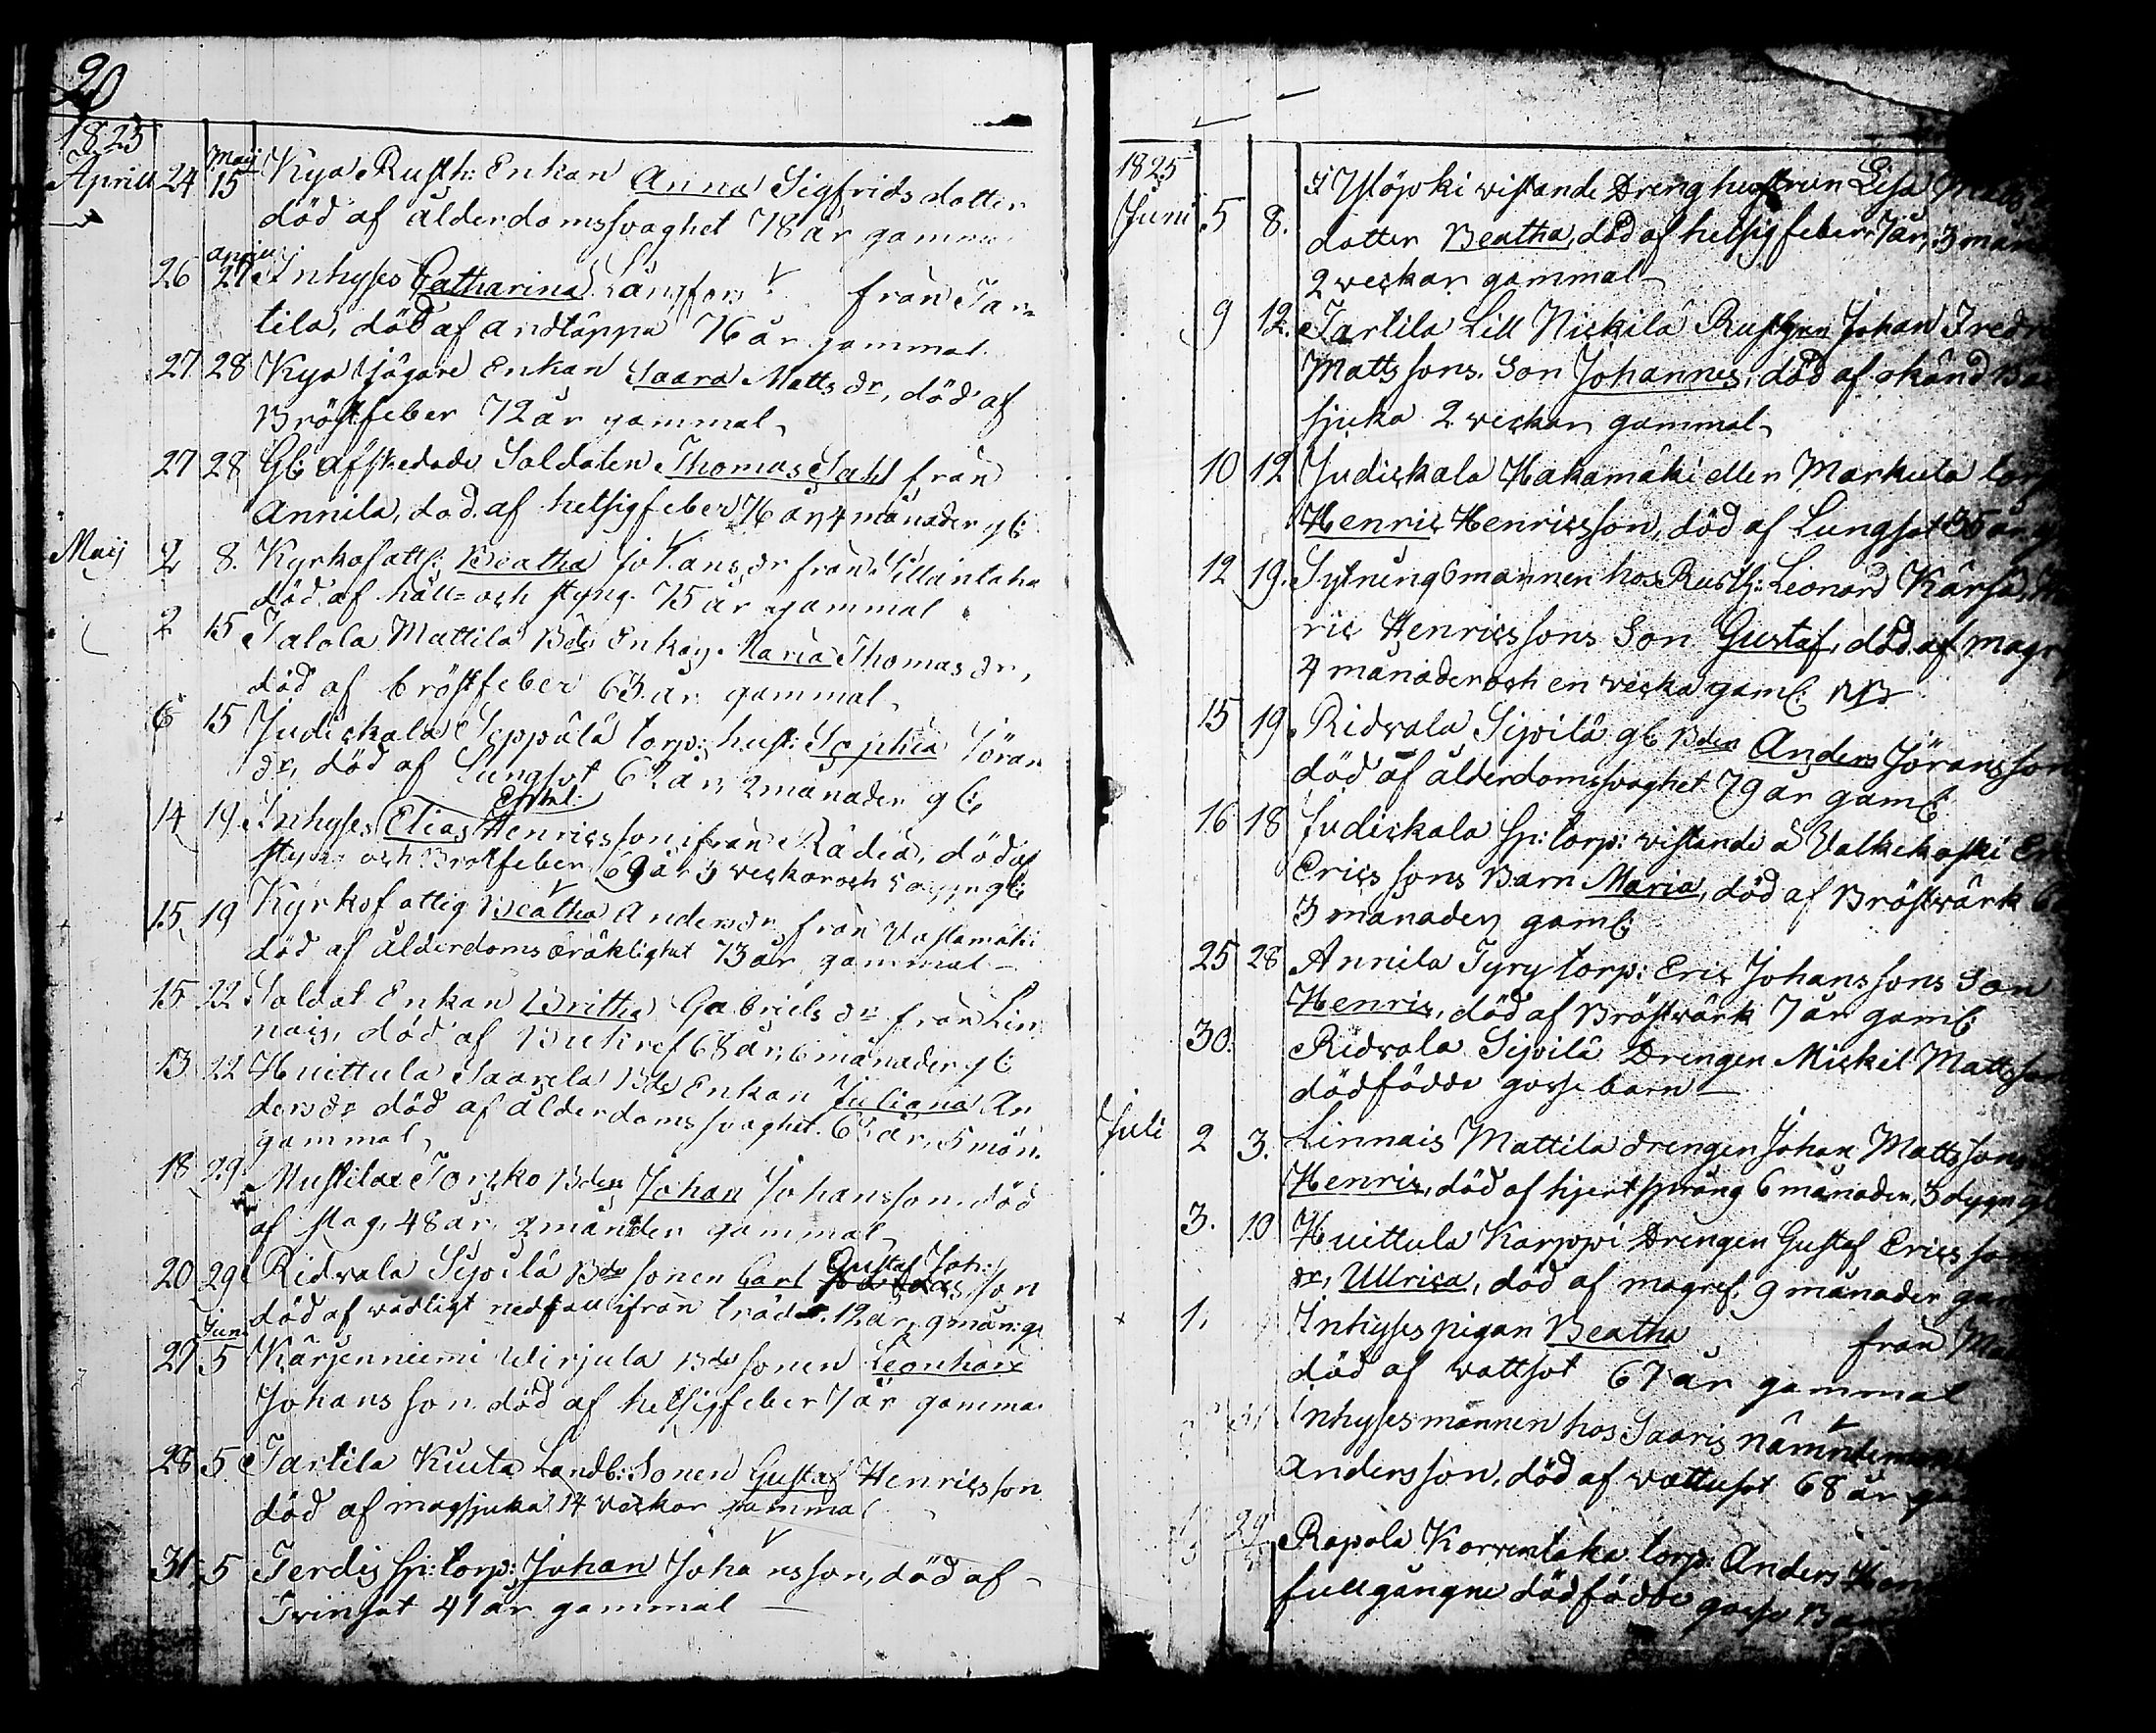 20
1825
Aprill 24 Maij 15 Kya Rusth: Enkan Anna Sigfrids dotter
död af ålderdomssvaghet 78 år gamma
26 aprill 27 Inhyses Catharina Långfors från Tar=
tila, död af andtäppa 76 år gammal.
27 28 Kya Jägare Enkan Saara Matts dr, död af
Bröstfeber 72 år gammal
27 28 Gl: afskedade Soldaten Thomas Sahl från
Annila, död af hetsigfeber 76 år, 4 månader gl:
Maij 2 8. Kyrkofattl: Beatha Johans dr från
död af håll= och styng 75 år gammal
2 15 Talola Mattila Bde Enkan Maria Thomas dr,
död af bröstfeber 63 år gammal
6 15 Judickala Seppälä torp: hust: Sophia Jöran
dr, död af Lungsot 62 år, 2 månader gl:
14 19 Inhyses Elias Henricsson ifrån Rädiä, död af
styn= och Bröstfeber 69 år 3 veckor och 5 dygn gl:
15 19 Kyrkofattig Beatha Anders dr från
död af ålderdoms bräklighet 73 år gammal
15 22 Soldat Enkan Britha Gabriels dr från Lin
nais, död af Bukref 68 år, 6 månader gl:
13 22 Huittula Saarela Bde Enkan Juliana An
ders dr död af ålderdoms svaghet. år, 5 mån.
gammal
18 29 Mustila Torcko Bden Johan Johansson död
af slag, 48 år, 2 månader gammal
20 29 Ridvala Sipilä Bde sonen Carl Gustaf Joh: son
död af vådligt nedfall ifrån träd 12 år, 9 mån: gl
27 Jun: 5 Kärjenniemi Wirjula Bde sonen Leonhard
Johansson död af hetsigfeber 7 år gamma
28 5 Tartila Kiuta Landb: Sonen Gustaf Henricsson
död af magsjuka 14 veckor gammal
31 5 Terdis sp: torp: Johan Johansson, död af
Tvinsot 41 år gammal
1825
Juni 5 8. I vistande Dreng hustrun Lisa Matts
dotter Beatha, död af hetsigfeber 7 år, 3 mån
2 veckor gammal
9 12. Tartila Lill Nickilä Johan Fredr
Mattssons Son Johannes, död af okänd Bar
sjuka 2 veckor gammal
10 12 Judickala Hakamäki eller Markula torp
Henric Henricsson, död af Lungsot 35 år g
12 19. Sytningsmannen hos Rusth: Leonard Kärsä,
ric Henricssons Son Gustaf, död af magr
4 månader och en vecka gaml: NB
15 19. Ridvala Sipilä gl Bden Anders Jöransson
död af ålderdomssvaghet 79 år gaml:
16 18 Judickala Sp: torp: vistande å Valkekoski Er
Ericssons Barn Maria, död af Bröstvärk 6
3 månader gaml:
25 28 Annila Tyry torp: Eric Johanssons Son
Henric, död af Bröstvärk 7 år gaml:
30. Ridvala Sipilä Drengen Mickel Mattsson
dödfödde gosse barn
Juli 2 3. Linnais Mattila drengen Johan Mattssons
Henric, död af hjertsprång 6 månader, 3 dygn gl
3. 10 Huittula Karppi Drengen Gustaf Ericsson
dr, Ullrica, död af magref 9 månader gam
1. Inhyses pigan Beatha från
död af vattsot 67 år gammal
Inhysesmannen hos Saaris nämndeman
Andersson, död af vattusot 68 år ga
29 Rapola Korventaka torp: Anders Hen
fullgångne dödfödde gosse Bar